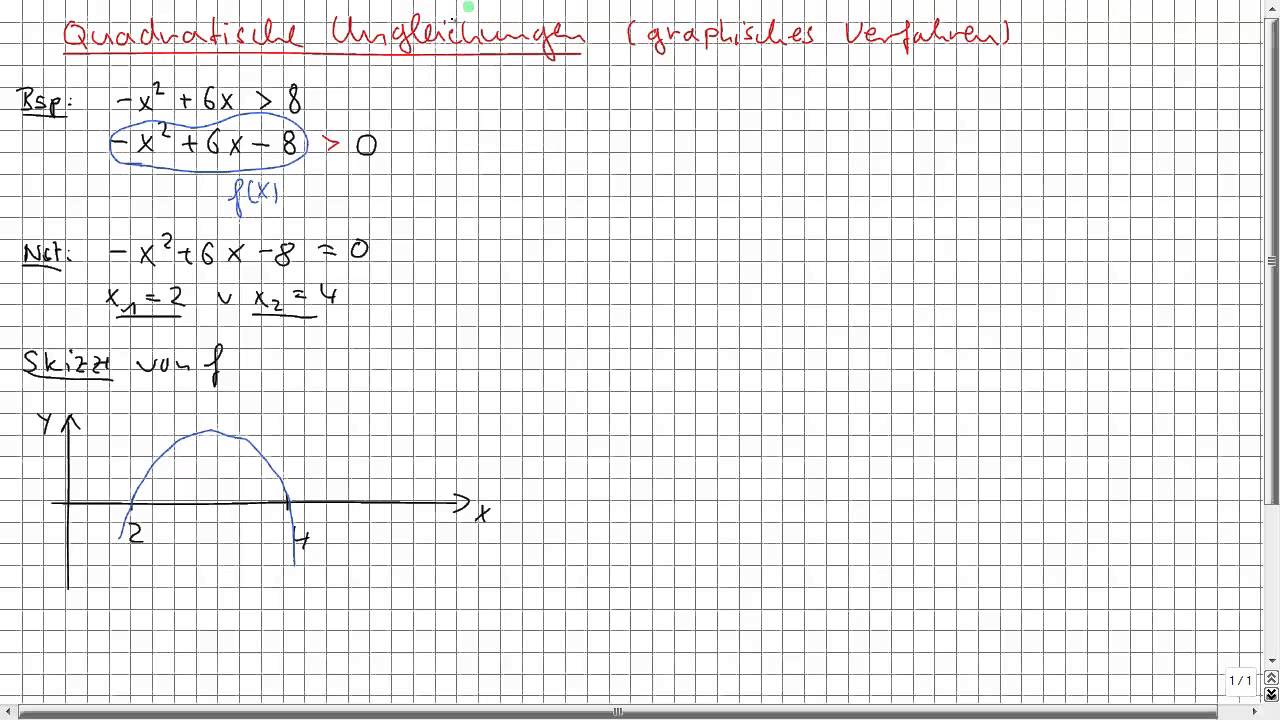 Quadratische Ungleichungen (graphisches Verfahren)
Bsp: -x² + 6x > 8
-x² + 6x - 8 > 0
f(x)
Nst: -x² + 6x - 8 = 0
x₁ = 2 ∨ x₂ = 4
Skizze von f
y
x
2 4
1/1